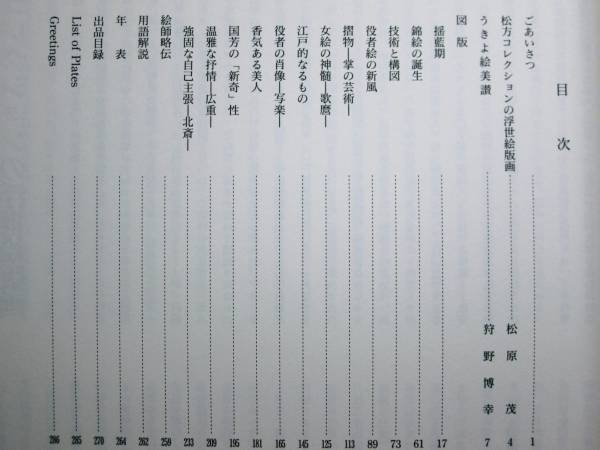 目次
ごあいさつ 1
松方コレクションの浮世絵版画 松原茂 4
うきよ絵美讃 狩野博幸 7
図版
揺藍期 17
錦絵の誕生 61
技術と構図 73
役者絵の新風 89
摺物―掌の芸術― 113
女絵の神髄―歌麿― 125
江戸的なるもの 145
役者の肖像―写楽― 165
香気ある美人 181
国芳の「新奇」性 195
温雅な抒情―広重― 209
強固な自己主張―北斎― 233
絵師略伝 259
用語解説 262
年表 264
出品目録 270
List of Plates 285
Greetings 286